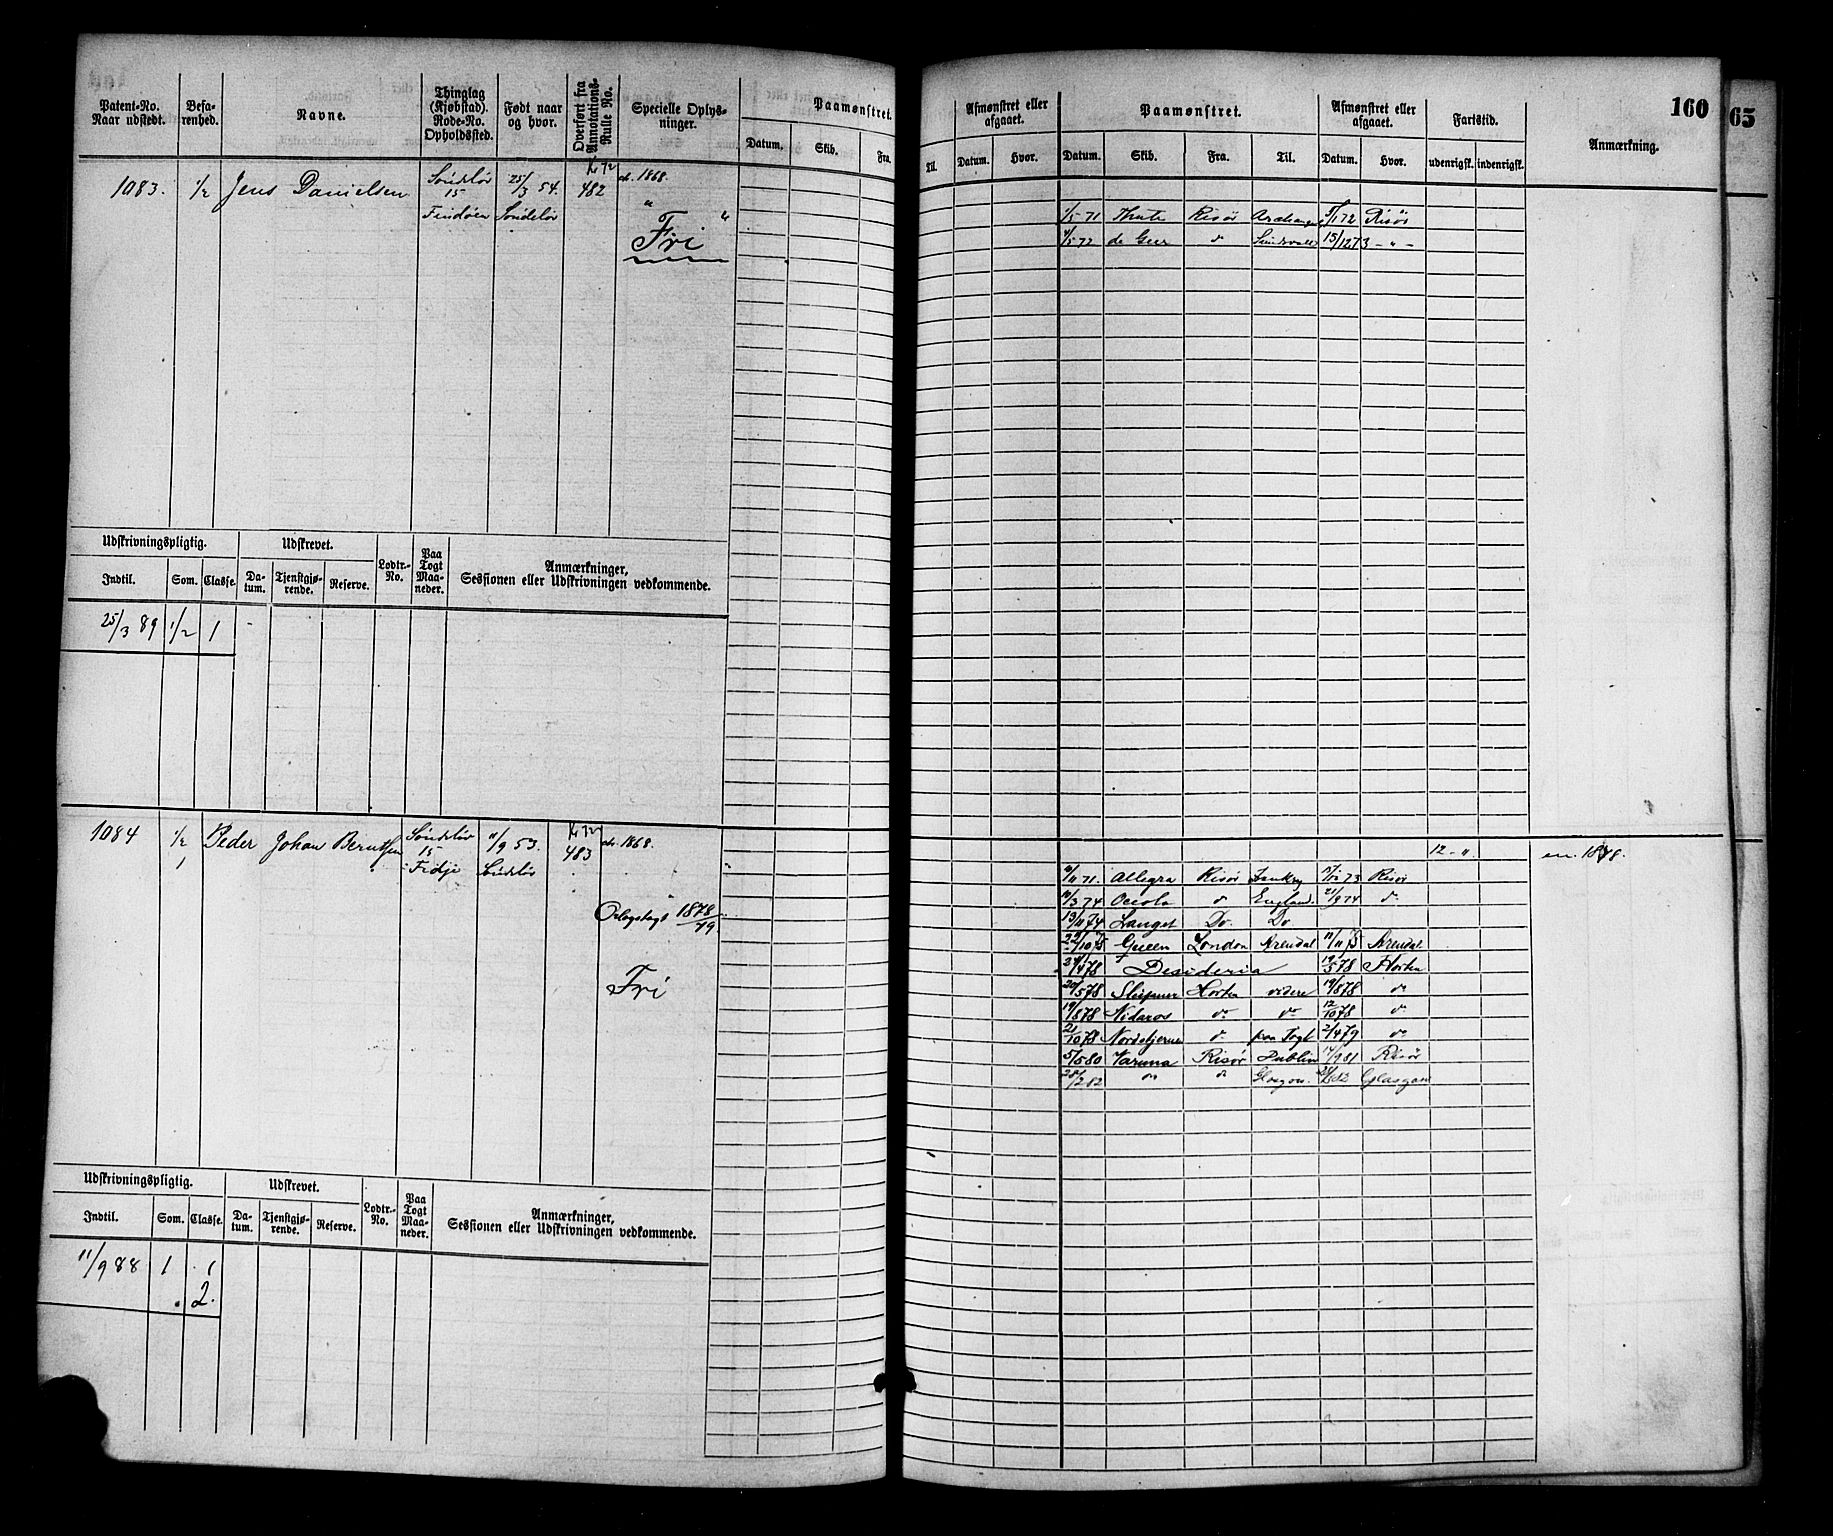 160
65
Patent-No. Naar udstedt.
Befarenhed.
Navne.
Thinglag (Kjøbstad). Rode-No. Opholdssted.
Født naar og hvor.
Overført fra Annotations-Rulle No.
Specielle Oplysninger.
Paamønstret.
Datum. Skib. Fra.
Til.
Afmønstret eller afgaaet.
Datum. Hvor.
Paamønstret.
Datum. Skib. Fra. Til.
Afmønstret eller afgaaet.
Datum. Hvor.
Fartstid.
udenrigsk. indenrigsk.
Anmærkning.
1083. 1/2 Jens Danielsen Søndeløv 25/3 54. 482 1868.
15
Findøen Søndeløv
Fri
1/5 71 Risør 5/1 72 Risør
4/5 72 de Geer do Sundsvall 15/12 73 - " -
Udskrivningspligtig.
Udskrevet.
Indtil. Som. Classe. Datum. Tjenstgjørende. Reserve.
Lodtr.-No.
Paa Togt Maaneder.
Anmærkninger, Sessionen eller Udskrivningen vedkommende.
25/3 89 1/2 1
1084 1/2 Peder Johan Berntsen Søndeløv 11/9 53. 483 1868.
1 15
Fidje Søndeløv
Orlogstogt 1878/79.
Fri
12 - "
1878.
11/11 71. Allegra Risør 17/12 73 Risør
11/3 74 Oceola do England. 21/9 74 do
13/11 74 Langet Do Do
22/10 75 Queen London Arendal 11/11 75 Arendal
24/4 78 Desideria 19/5 78 Horten
20/5 78 Sleipner Horten videre 19/8 78 do
19/8 78 Nidaros do do 12/10 78 do
21/10 78 Nordstjernen do paa Togt 2/4 79 do
5/5 80 Varuna Risør Dublin 14/9 81 Risør
28/2 82 do do Glasgow. Glasgow
Udskrivningspligtig.
Udskrevet.
Indtil. Som. Classe. Datum. Tjenstgjørende. Reserve.
Lodtr.-No.
Paa Togt Maaneder.
Anmærkninger, Sessionen eller Udskrivningen vedkommende.
11/9 88 1 1
2.